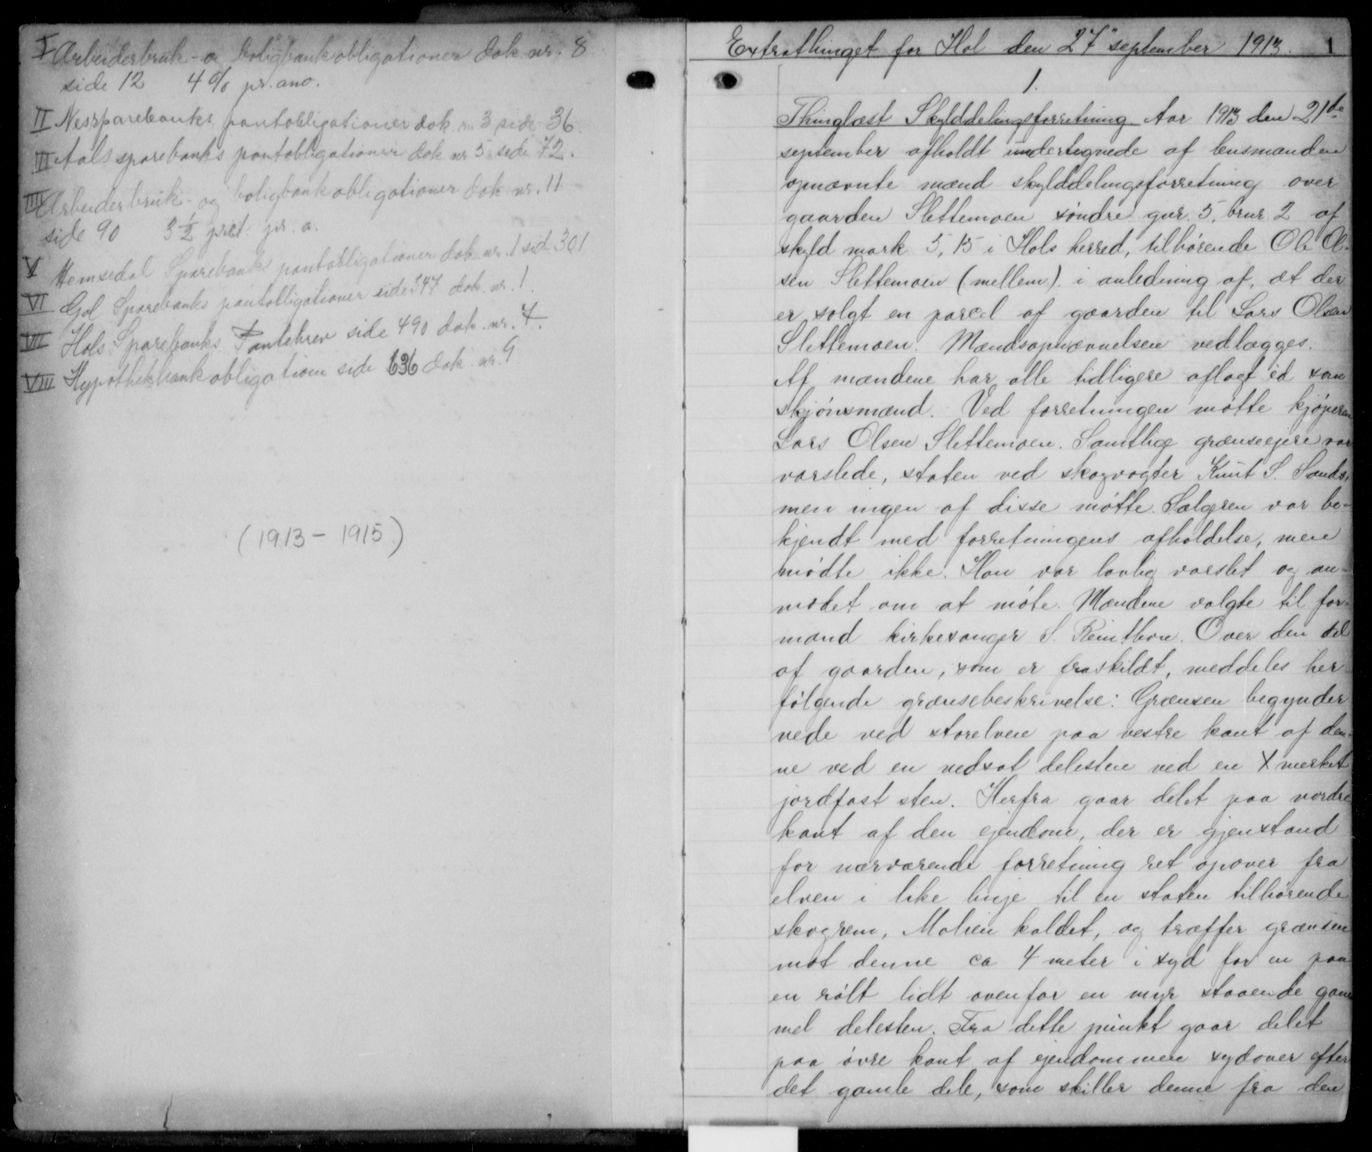 I Arbeiderbruk- og boligbankobligationer dok. nr. 8
side 12 4 % pr. ano.
II Nessparebanks pantobligationer dok. nr. 3 side 36
III Aals sparebanks pantobligationer dok nr. 5 side 72.
IIII Arbeiderbruk- og boligbankobligationer dok nr. 11
side 90 3 1/2 prct. pr. a.
V Hemsedal Sparebanks pantobligationer dok. nr. 1 sid 301
VI Gol Sparebanks pantobligationer side 347 dok. nr. 1.
VII Hols Sparebanks Pantebrev side 490 dok. nr. 4.
VIII Hypothekbankobligation side 636 dok. nr. 9
(1913 - 1915)
Extrathinget for Hol den 27" september 1913. 1
1.
Thinglæst Skylddelingsforretning Aar 1913 den 21de
september afholdt undertegnede af lensmanden
opnævnte mænd skylddelingsforretning over
gaarden Slettemoen søndre gnr. 5, brnr. 2 af
skyld mark 5,15 i Hols herred, tilhørende Ole Ol-
sen Slettemoen (mellem) i anledning af, at der
er solgt en parcel af gaarden til Lars Olsen
Slettemoen. Mændsopnævnelsen vedlægges.
Af mændene har alle tidligere aflagt ed som
skjønsmænd. Ved forretningen møtte kjøperen
Lars Olsen Slettemoen. Samtlige grænseeiere var
varslede, staten ved skogvogter Knut S. Sando,
men ingen af disse møtte. Sælgeren var be-
kjendt med forretningens afholdelse, men
mødte ikke. Han var lovlig varslet og an-
modet om at møte. Mændene valgte til for-
mand kirkesanger S. Reinthon. Over den del
af gaarden, som er fraskildt, meddeles her
følgende grænsebeskrivelse: Grænsen begynder
nede ved storelven paa vestre kant af den-
ne ved en nedsat delesten ved en X merket
jordfast sten. Herfra gaar delet paa nordre
kant af den eiendom, der er gjenstand
for nærværende forretning ret opover fra
elven i like linje til en staten tilhørende
skogrem, Molien kaldet, og træffer grænsen
mot denne ca 4 meter i syd for en paa
en rølt lidt ovenfor en myr staaende gam
mel delesten. Fra dette punkt gaar delet
paa øvre kant af eiendommen sydover efter
det gamle dele, som skiller denne fra den